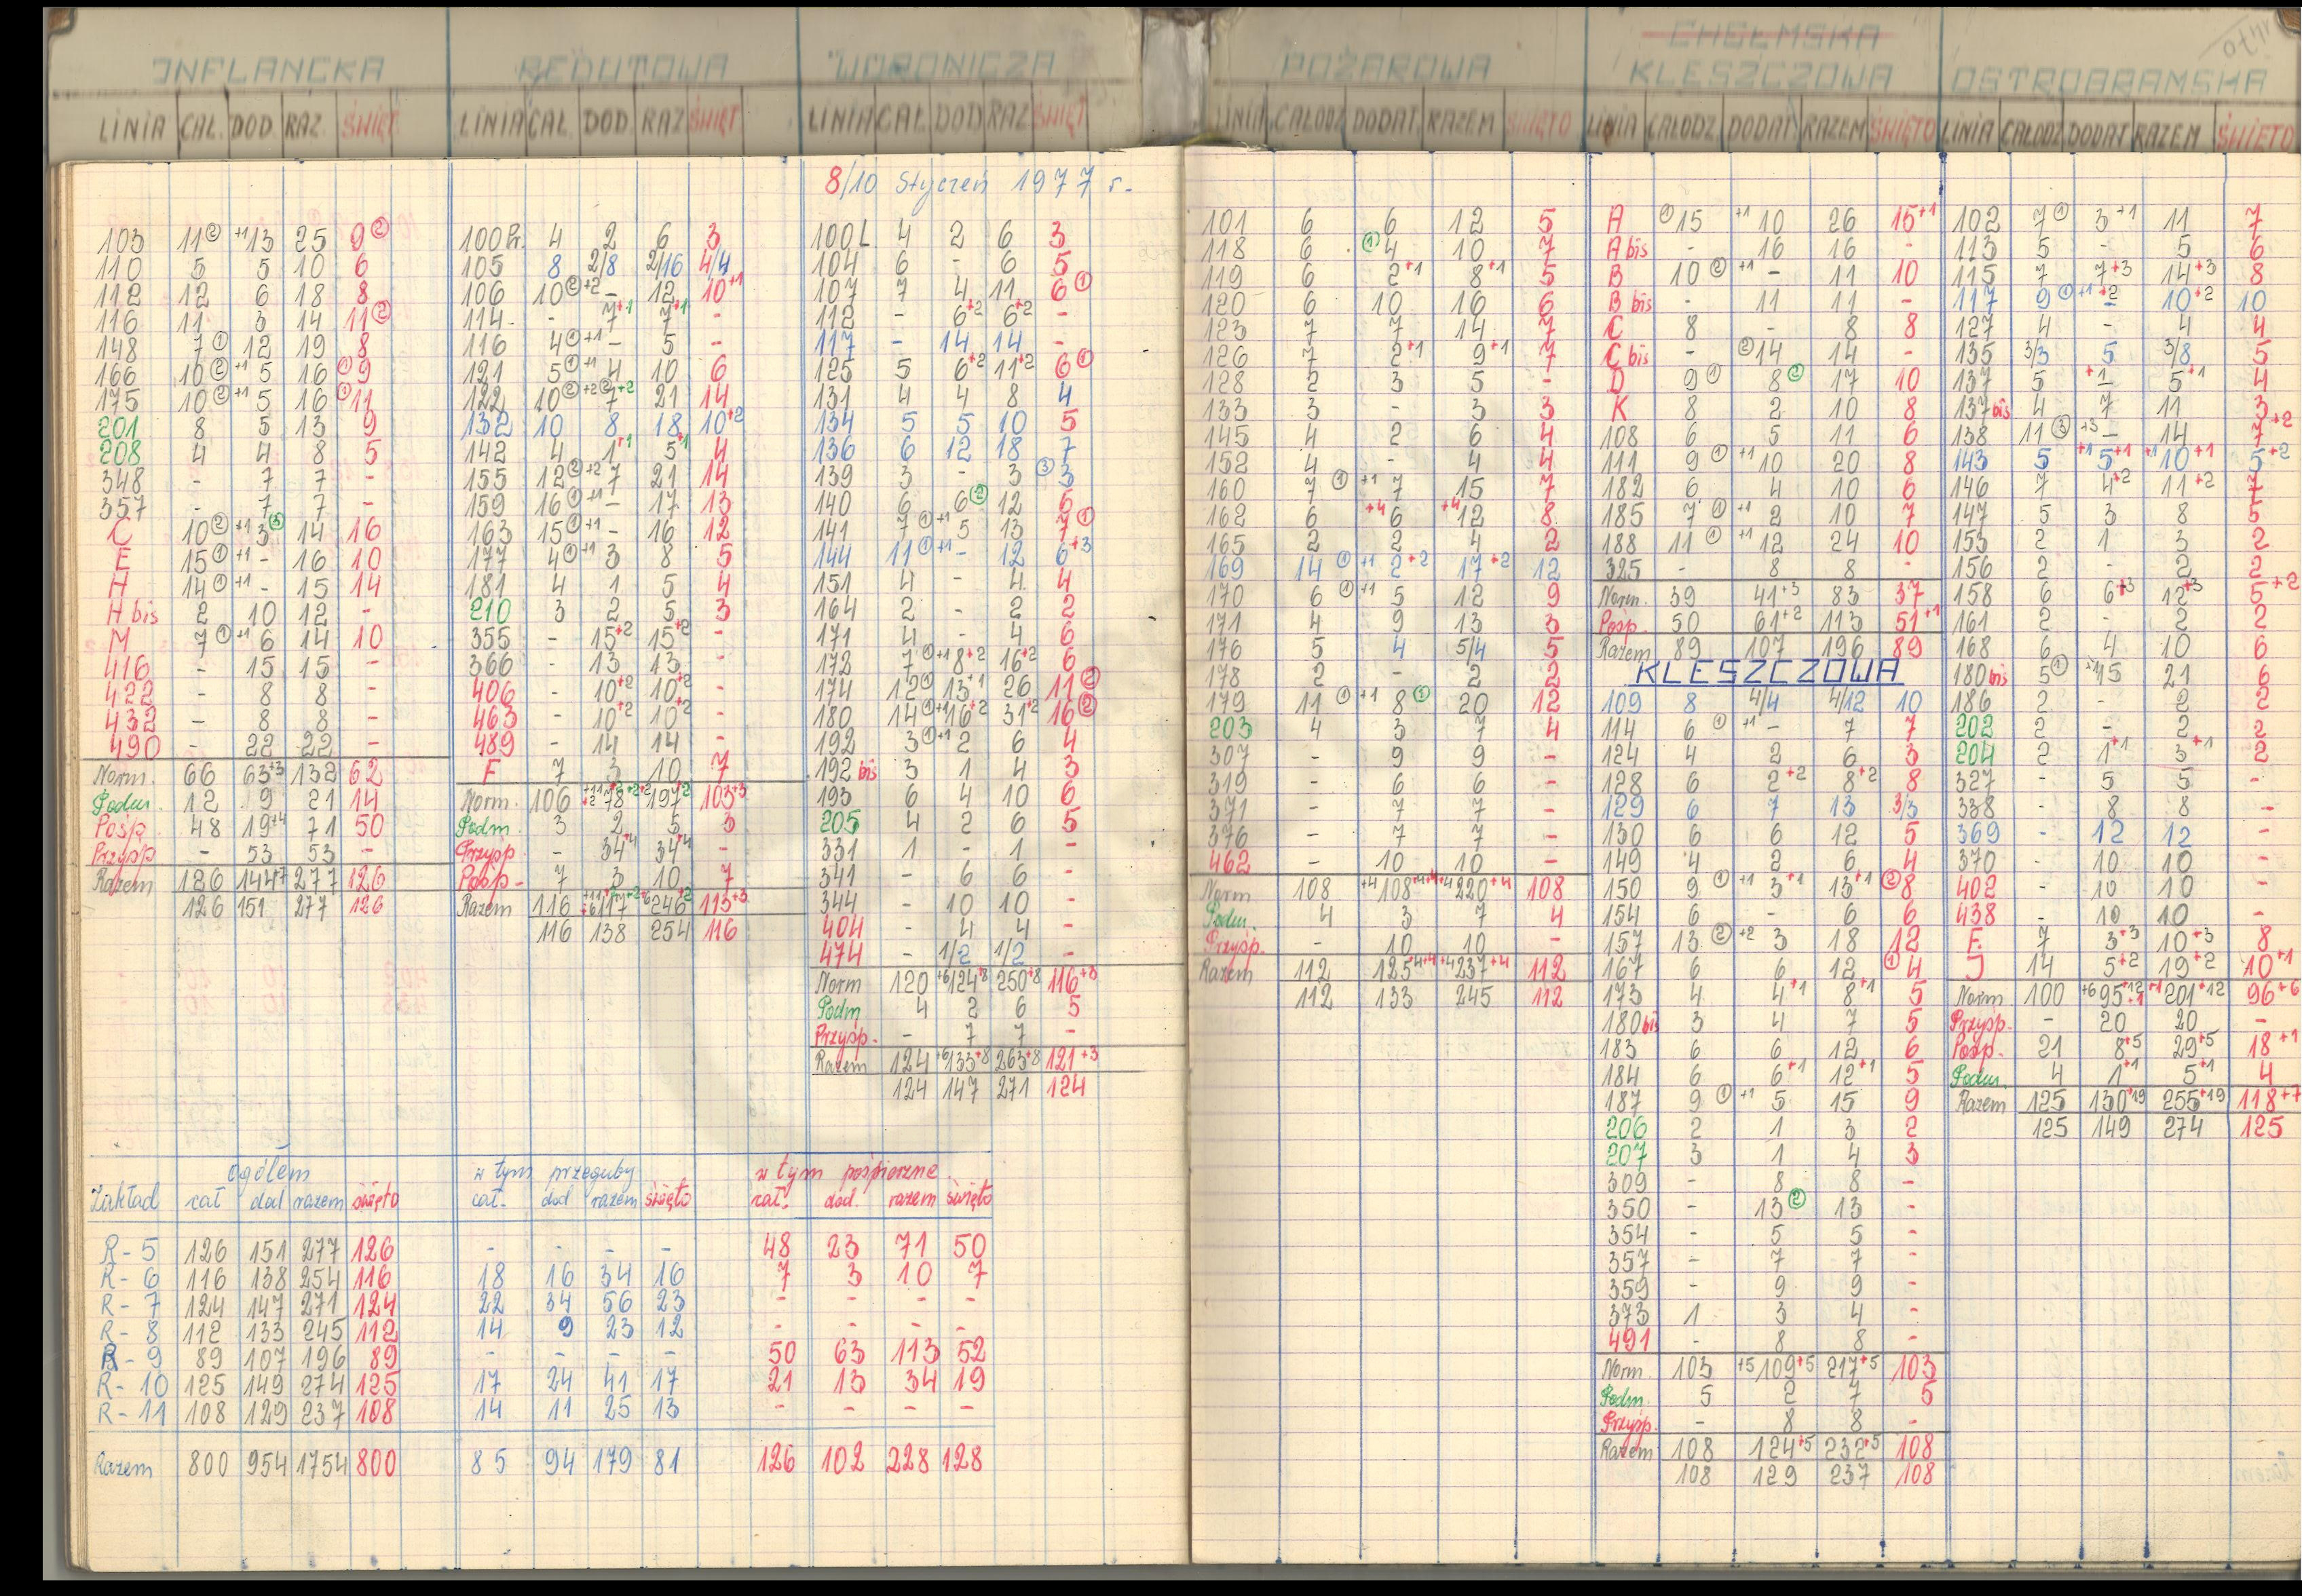 INFLANCKA
LINIA CAŁ. DOD. RAZ. ŚWIĘT.
103 11② +1 13 25 9②
110 5 5 10 6
112 12 6 18 8
116 11 3 14 11②
148 7① 12 19 8
166 10② +1 5 16 ①9
175 10② +1 5 16 ①11
201 8 5 13 9
208 4 4 8 5
348 - 7 7 -
357 - 7 7 -
C 10② +1 3③ 14 16
E 15① +1 - 16 10
H 14① +1 - 15 14
H bis 2 10 12 -
M 7① +1 6 14 10
416 - 15 15 -
422 - 8 8 -
432 - 8 8 -
490 - 22 22 -
Norm. 66 63+3 132 62
Podm. 12 9 21 14
Pośp. 48 19+4 71 50
Przysp. - 53 53 -
Razem 126 144+7 277 126
126 151 277 126
REDUTOWA
LINIA CAŁ. DOD. RAZ ŚWIĘT
100 Pr. 4 2 6 3
105 8 2/8 2/16 4/4
106 10② +2 - 12 10+1
114 - 7+1 7+1 -
116 4① +1 - 5 -
121 5① +1 4 10 6
122 10② +2② 7+2 21 14
132 10 8 18 10+2
142 4 1+1 5+1 4
155 12② +2 7 21 14
159 16① +1 - 17 13
163 15① +1 - 16 12
177 4① +1 3 8 5
181 4 1 5 4
210 3 2 5 3
355 - 15+2 15+2 -
366 - 13 13 -
406 - 10+2 10+2 -
463 - 10+2 10+2 -
489 - 14 14 -
F 7 3 10 7
Norm. 106 78 197 103+3
Podm. 3 2 5 3
Przysp. - 34+4 34+4 -
Pośp. - 7 3 10 7
Razem 116 117 246 113+3
116 138 254 116
WORONICZA
LINIA CAŁ. DOD RAZ ŚWIĘT
8/10 Styczeń 1977 r.
100 L 4 2 6 3
104 6 - 6 5
107 7 4 11 6①
112 - 6+2 6+2 -
117 - 14 14 -
125 5 6+2 11+2 6①
131 4 4 8 4
134 5 5 10 5
136 6 12 18 7
139 3 - 3 ③3
140 6 6② 12 6
141 7① +1 5 13 7①
144 11① +1 - 12 6+3
151 4 - 4 4
164 2 - 2 2
171 4 - 4 6
172 7① +1 8+2 16+2 6
174 12① 13+1 26 11②
180 14① +1 16+2 31+2 16②
192 3① +1 2 6 4
192 bis 3 1 4 3
193 6 4 10 6
205 4 2 6 5
331 1 - 1 -
341 - 6 6 -
344 - 10 10 -
404 - 4 4 -
474 - 1/2 1/2 -
Norm 120 +6 124+8 250+8 116+8
Podm 4 2 6 5
Przysp. - 7 7 -
Razem 124 +6 133+8 263+8 121+3
124 147 271 124
ogółem w tym przeguby w tym pośpieszne
Zakład cał dod razem święto cał. dod razem święto cał. dod. razem święto
R-5 126 151 277 126 - - - - 48 23 71 50
R-6 116 138 254 116 18 16 34 16 7 3 10 7
R-7 124 147 271 124 22 34 56 23 - - - -
R-8 112 133 245 112 14 9 23 12 - - - -
R-9 89 107 196 89 - - - - 50 63 113 52
R-10 125 149 274 125 17 24 41 17 21 13 34 19
R-11 108 129 237 108 14 11 25 13 - - - -
Razem 800 954 1754 800 85 94 179 81 126 102 228 128
POŻAROWA
LINIA CAŁODZ DODAT RAZEM ŚWIĘTO
101 6 6 12 5
118 6 ①4 10 7
119 6 2+1 8+1 5
120 6 10 16 6
123 7 7 14 7
126 7 2+1 9+1 7
128 2 3 5 -
133 3 - 3 3
145 4 2 6 4
152 4 - 4 4
160 7① +1 7 15 7
162 6 +4 6 +4 12 8
165 2 2 4 2
169 14① +1 2+2 17+2 12
170 6① +1 5 12 9
171 4 9 13 3
176 5 4 5/4 5
178 2 - 2 2
179 11① +1 8① 20 12
203 4 3 7 4
307 - 9 9 -
319 - 6 6 -
371 - 7 7 -
376 - 7 7 -
462 - 10 10 -
Norm 108 +4 108+4 +4 220+4 108
Podm. 4 3 7 4
Przysp. - 10 10 -
Razem 112 125+4+4 +4 237+4 112
112 133 245 112
CHEŁMSKA
KLESZCZOWA
LINIA CAŁODZ DODAT RAZEM ŚWIĘTO
A ①15 +1 10 26 15+1
A bis - 16 16 -
B 10② +1 - 11 10
B bis - 11 11 -
C 8 - 8 8
C bis - ②14 14 -
D 9① 8② 17 10
K 8 2 10 8
108 6 5 11 6
111 9① +1 10 20 8
182 6 4 10 6
185 7① +1 2 10 7
188 11① +1 12 24 10
325 - 8 8 -
Norm. 39 41+3 83 37
Pośp. 50 61+2 113 51+1
Razem 89 107 196 89
KLESZCZOWA
109 8 4/4 4/12 10
114 6① +1 - 7 7
124 4 2 6 3
128 6 2+2 8+2 8
129 6 7 13 3/3
130 6 6 12 5
149 4 2 6 4
150 9① +1 3+1 13+1 ②8
154 6 - 6 6
157 13② +2 3 18 12
167 6 6 12 ①4
173 4 4+1 8+1 5
180 bis 3 4 7 5
183 6 6 12 6
184 6 6+1 12+1 5
187 9① +1 5 15 9
206 2 1 3 2
207 3 1 4 3
309 - 8 8 -
350 - 13② 13 -
354 - 5 5 -
357 - 7 7 -
359 - 9 9 -
373 1 3 4 -
491 - 8 8 -
Norm. 103 +5 109+5 217+5 103
Podm. 5 2 7 5
Przysp. - 8 8 -
Razem 108 124+5 232+5 108
108 129 237 108
OSTROBRAMSKA
LINIA CAŁODZ DODAT RAZEM ŚWIĘTO
102 7① 3+1 11 7
113 5 - 5 6
115 7 7+3 14+3 8
117 9① +1 +2 - 10+2 10
127 4 - 4 4
135 3/3 5 3/8 5
137 5 +1 - 5+1 4
137 bis 4 7 11 3
138 11③ +3 - 14 7+2
143 5 +1 5+1 +1 10+1 5+2
146 7 4+2 11+2 7
147 5 3 8 5
153 2 1 3 2
156 2 - 2 2
158 6 6+3 12+3 5+2
161 2 - 2 2
168 6 4 10 6
180 bis 5① +1 15 21 6
186 2 - 2 2
202 2 - 2 2
204 2 1+1 3+1 2
327 - 5 5 -
338 - 8 8 -
369 - 12 12 -
370 - 10 10 -
402 - 10 10 -
438 - 10 10 -
F 7 3+3 10+3 8
J 14 5+2 19+2 10+1
Norm 100 +6 95+12 201+12 96+6
Przysp. - 20 20 -
Pośp. 21 8+5 29+5 18+1
Podm. 4 1+1 5+1 4
Razem 125 130+19 255+19 118+7
125 149 274 125